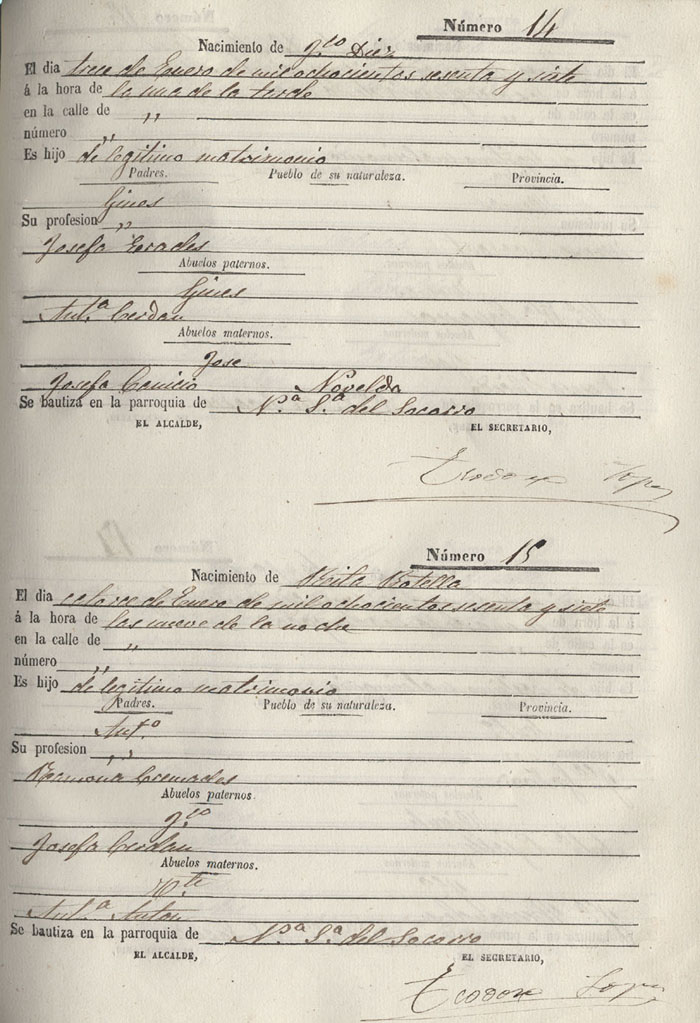 Número 14
Nacimiento de Fco Diez
El dia trece de Enero de mil ochocientos sesenta y siete
á la hora de la una de la tarde
en la calle de "
número "
Es hijo de legitimo matrimonio
Padres. Pueblo de su naturaleza. Provincia.
Gines
Su profesion "
Josefa
Abuelos paternos.
Gines
Antª Cerdan
Abuelos maternos.
Jose
Josefa Canicio Novelda
Se bautiza en la parroquia de Nª Sª del Socorro
EL ALCALDE, EL SECRETARIO,
Teodoro Lopez
Número 15
Nacimiento de Rita Botella
El dia catorce de Enero de mil ochocientos sesenta y siete
á la hora de las nueve de la noche
en la calle de "
número "
Es hijo de legitimo matrimonio
Padres. Pueblo de su naturaleza. Provincia.
Antº
Su profesion "
Ramona Cremades
Abuelos paternos
Fco
Josefa Cerdan
Abuelos maternos.
Vte
Antª Anton
Se bautiza en la parroquia de Nª Sª del Socorro
EL ALCALDE, EL SECRETARIO,
Teodoro Lopez